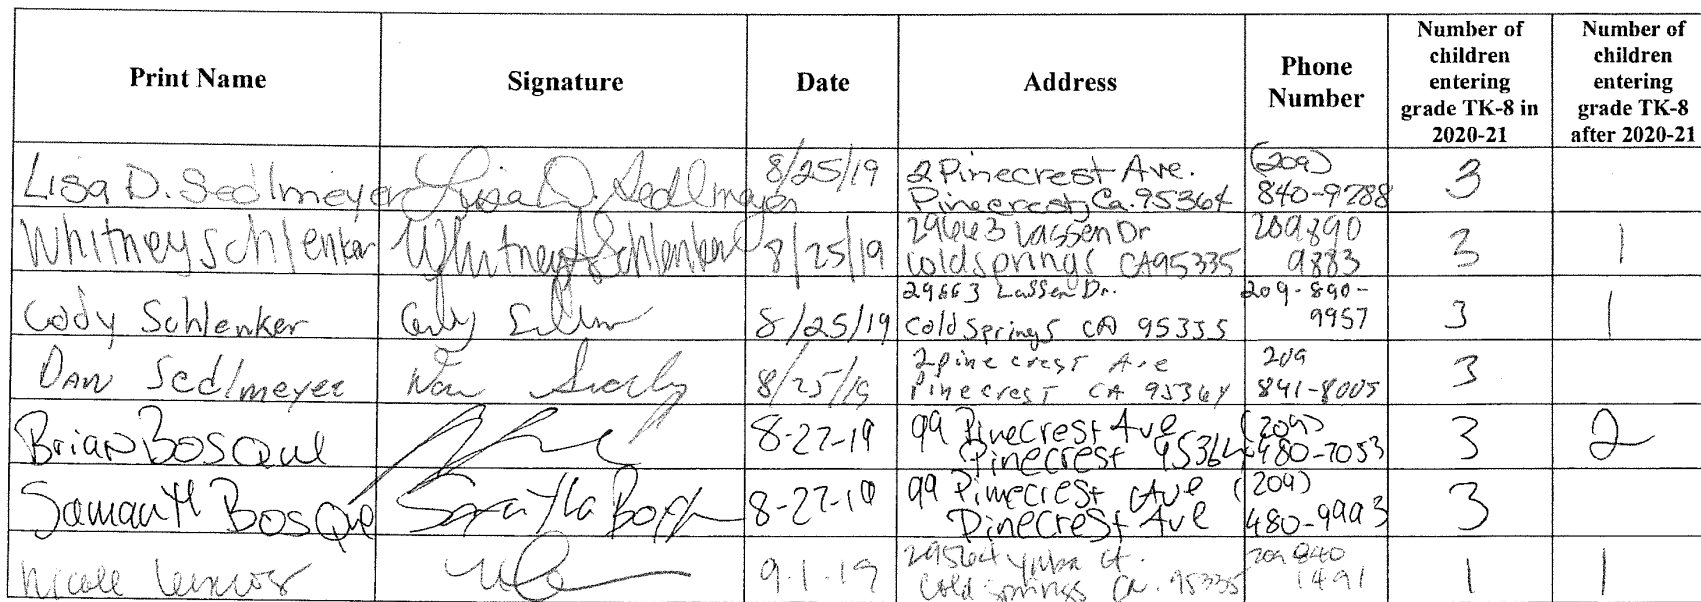 Print Name
Signature
Date
Address
Phone Number
Number of children entering grade TK-8 in 2020-21
Number of children entering grade TK-8 after 2020-21
Lisa D. Sedlmeyer Lisa D. Sedlmeyer 8/25/19 2 Pinecrest Ave. (209)
Pinecrest, Ca. 95364 840-9788 3
Whitney Schlenker Whitney Schlenker 8/25/19 29663 Lassen Dr 209 890
Cold springs CA 95335 9883 3 1
Cody Schlenker Cody 8/25/19 29663 Lassen Dr. 209-890-
Cold Springs CA 95335 9957 3 1
Dan Sedlmeyer Dan 8/25/19 2 pine crest Ave 209
Pinecrest CA 95364 841-8005 3
Brian Bosque 8-27-19 99 Pinecrest Ave (209)
Pinecrest 95364 480-7053 3 2
Bosque 8-27-19 99 Pinecrest Ave (209)
Pinecrest Ave 480-9993 3
Nicole 9-1-19 29564 Yuba Ct. 209 840
Cold springs Ca. 95335 1491 1 1